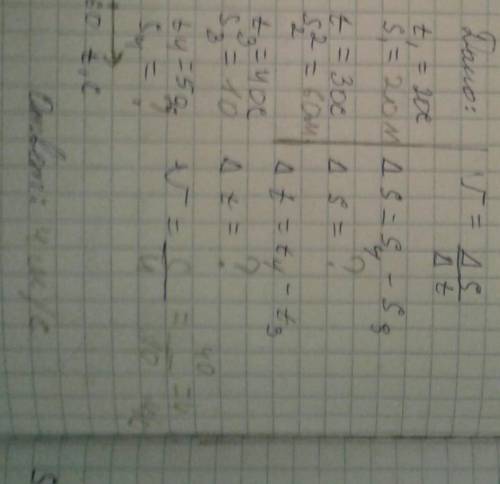 Дано:
t₁ = 20с
S₁ = 20м
t = 30с
S₂ = 60м
t₃ = 40с
S₃ = 10
t₄ = 50с
S₄ = ?
V = ΔS / Δt
ΔS = S₄ - S₃
ΔS = ?
Δt = t₄ - t₃
Δt = ?
V =
50 t,с
Ответ: 4 м/с